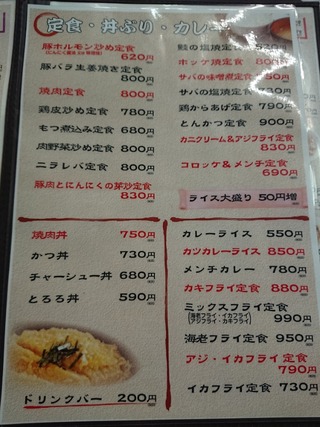 定食・丼ぶり・カレー
豚ホルモン炒め定食
620円
豚バラ生姜焼き定食
800円
焼肉定食 800円
鶏皮炒め定食 780円
もつ煮込み定食 680円
肉野菜炒め定食 800円
ニラレバ定食 800円
豚肉とにんにくの芽炒定食
830円
の塩焼定食
ホッケ焼定食
サバの味噌煮定食
サバの塩焼定食
鶏からあげ定食 790円
とんかつ定食 900円
カニクリーム&アジフライ定食
830円
コロッケ&メンチ定食
690円
ライス大盛り 50円増
焼肉丼 750円
かつ丼 730円
チャーシュー丼 680円
とろろ丼 590円
ドリンクバー 200円
カレーライス 550円
カツカレーライス 850円
メンチカレー 780円
カキフライ定食 880円
ミックスフライ定食
990円
海老フライ定食 950円
アジ・イカフライ定食
790円
イカフライ定食 730円